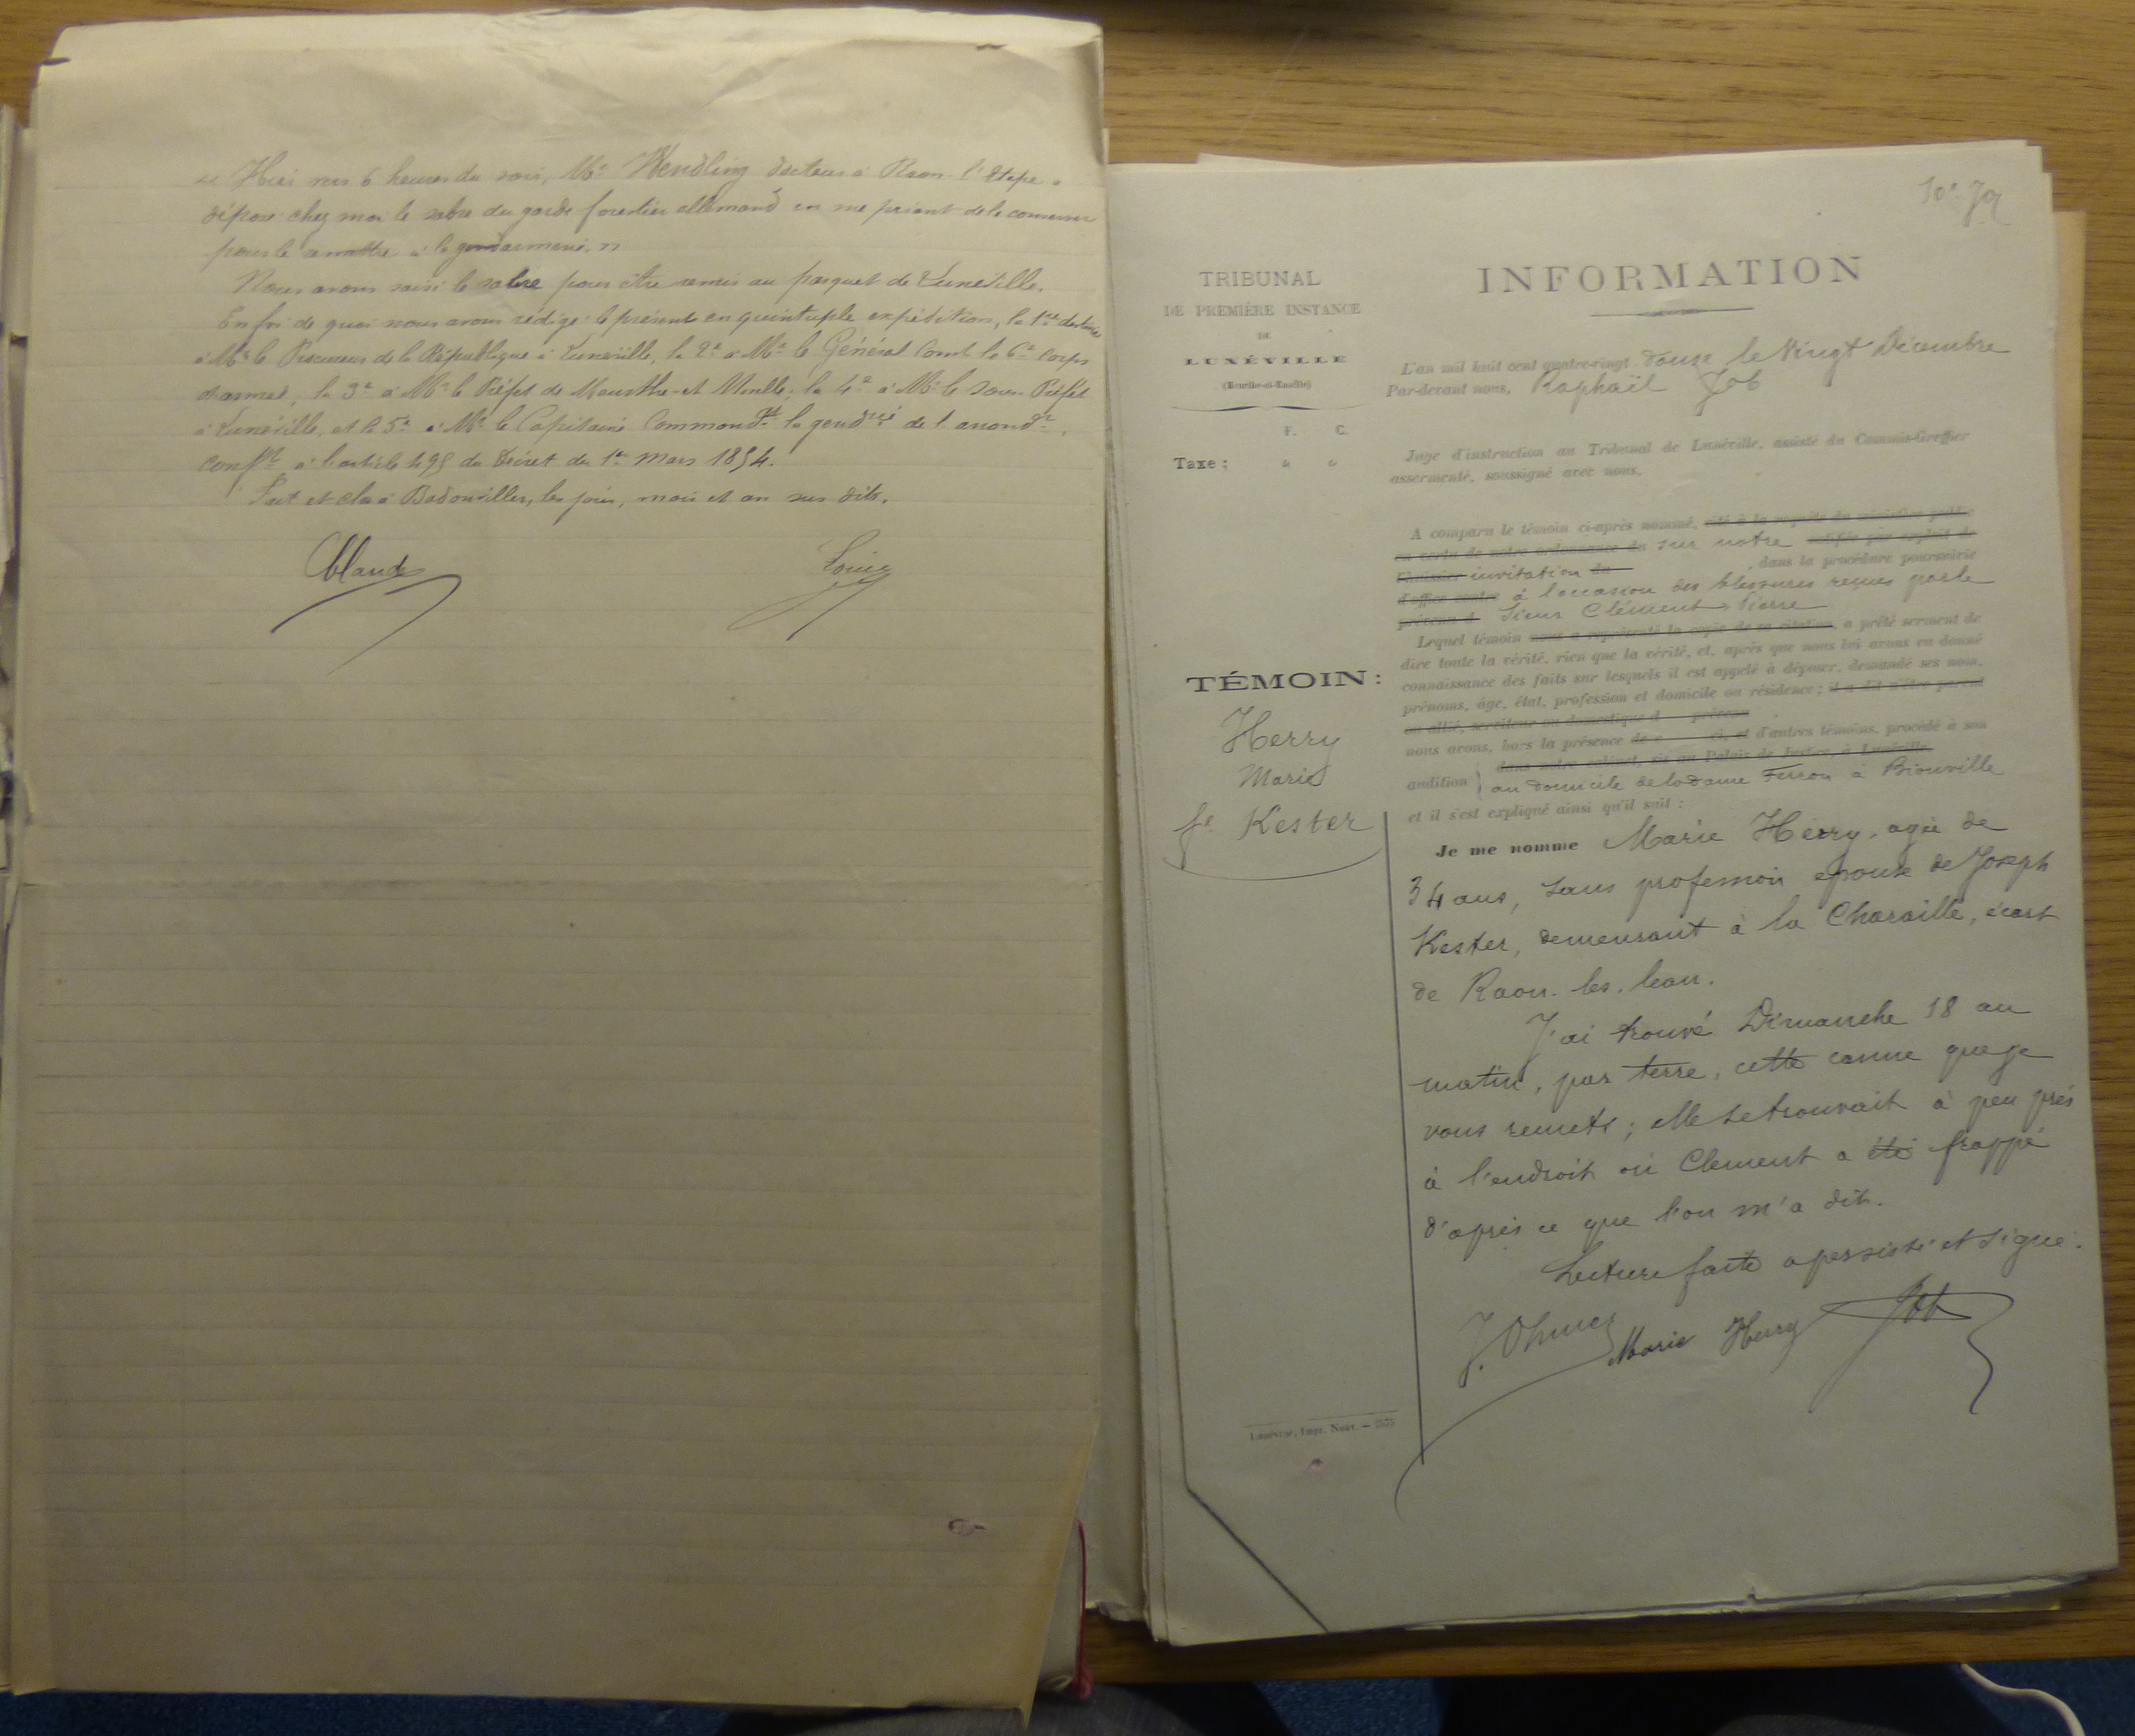 « Hier vers 6 heures du soir, Mr Wendling docteur à Raon-l'Etape a
déposé chez moi le sabre du garde forestier allemand en me priant de le conserver
pour le remettre à la gendarmerie. »
Nous avons saisi le sabre pour être remis au parquet de Lunéville.
En foi de quoi nous avons rédigé le présent en quintuple expédition, la 1re destinée
à Mr le Procureur de la République à Lunéville, la 2e à Mr le Général Comt le 6e Corps
d'armée, la 3e à Mr le Préfet de Meurthe-et-Moselle, la 4e à Mr le Sous-Préfet
à Lunéville, et la 5e à Mr le Capitaine Commandt la gendrie de l'arrondt,
conft à l'article 495 du Décret du 1er Mars 1854.
Fait et clos à Badonviller, les jour, mois et an sus dits.
Louis
TRIBUNAL
DE PREMIÈRE INSTANCE
DE
LUNÉVILLE
(Meurthe-et-Moselle)
F. C.
Taxe : " "
TÉMOIN :
Herry
Marie
fe Kester
Lunéville, Impr. Nouv. — 2575
INFORMATION
L'an mil huit cent quatre-vingt douze, le Vingt Décembre
Par-devant nous, Raphaël Job
Juge d'instruction au Tribunal de Lunéville, assisté du Commis-Greffier
assermenté, soussigné avec nous,
A comparu le témoin ci-après nommé, cité à la requête du ministère public
en vertu de notre ordonnance du sur notre notifiée par exploit de
l'huissier invitation du , dans la procédure poursuivie
d'office contre à l'occasion des blessures reçues par le
prévenu d Sieur Clément, Pierre
Lequel témoin nous a représenté la copie de sa citation, a prêté serment de
dire toute la vérité, rien que la vérité, et, après que nous lui avons eu donné
connaissance des faits sur lesquels il est appelé à déposer, demandé ses nom,
prénoms, âge, état, profession et domicile ou résidence ; il a dit n'être parent
ou allié, serviteur ou domestique d prévenu
nous avons, hors la présence de c ci, et d'autres témoins, procédé à son
dans notre cabinet, sis au Palais de Justice, à Lunéville,
audition au domicile de la dame Ferron à Bionville
et il s'est expliqué ainsi qu'il suit :
Je me nomme Marie Herry, agée de
34 ans, sans profession épouse de Joseph
Kester, demeurant à la Charaille, écart
de Raon-les-leau.
J'ai trouvé Dimanche 18 au
matin, par terre, cette canne que je
vous remets ; elle se trouvait à peu près
à l'endroit où Clement a été frappé
d'après ce que l'on m'a dit.
Lecture faite a persisté et signé.
Marie Herry Job